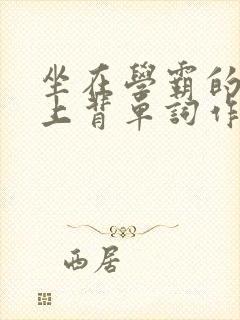 坐在學霸的
上背單詞作
西居